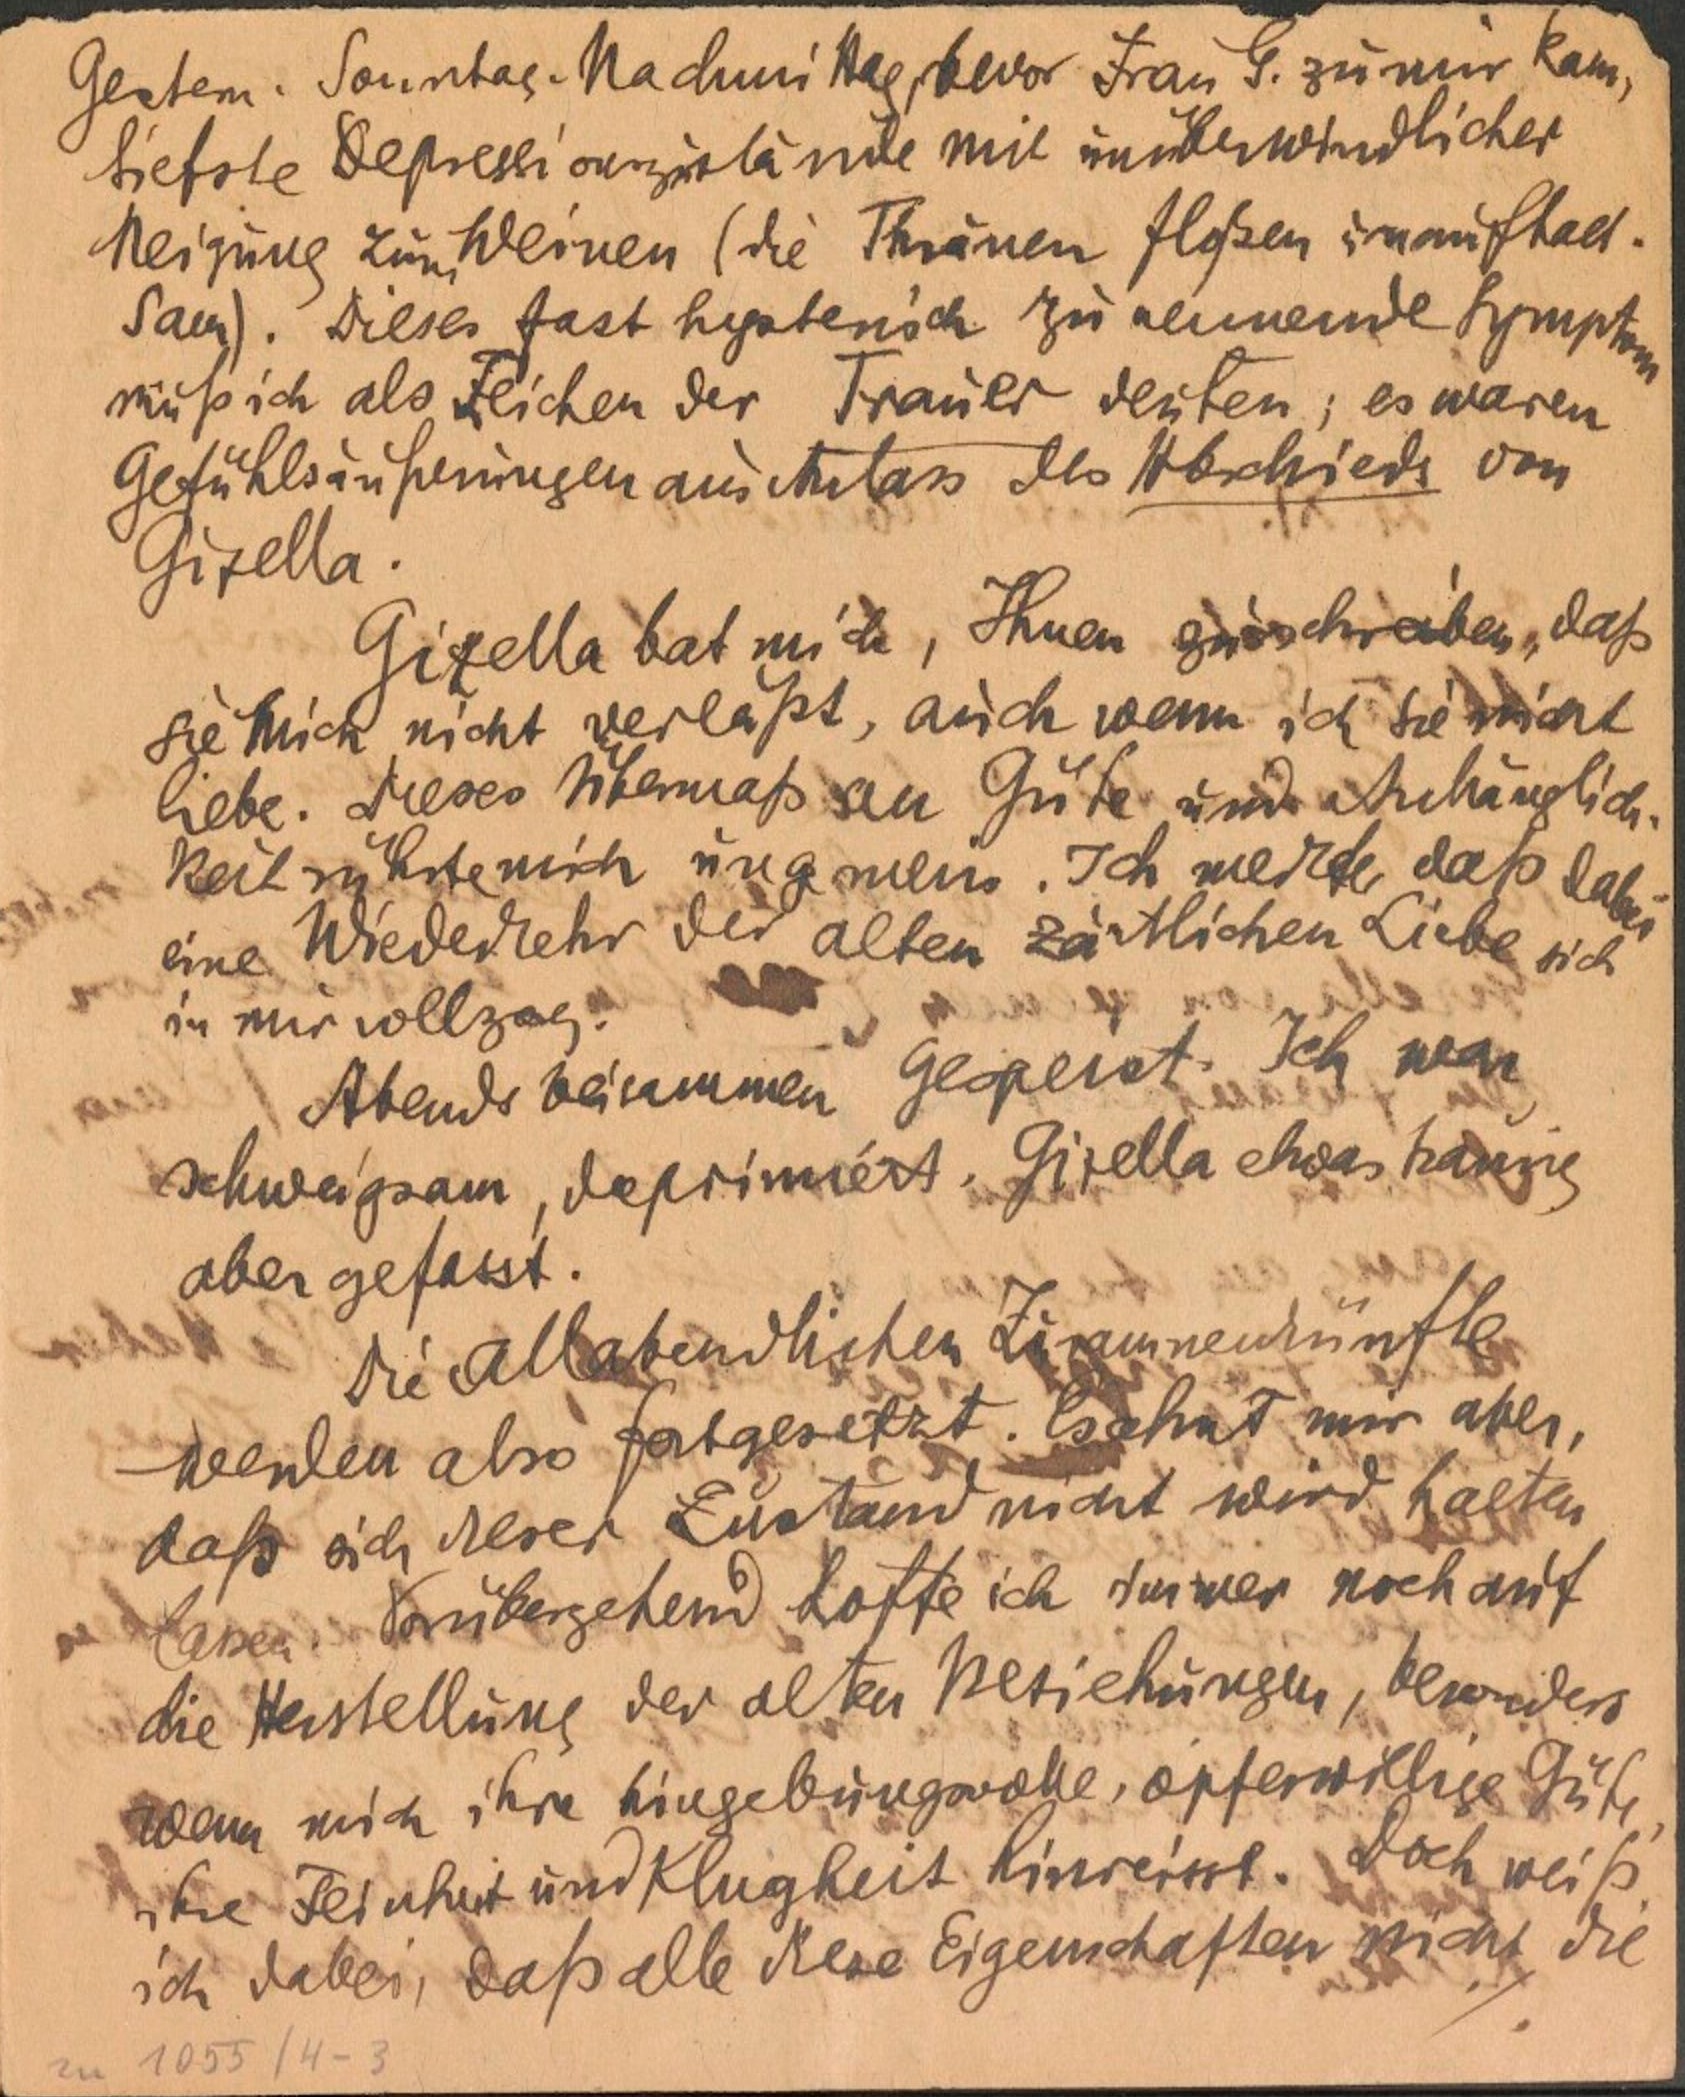 Gestern. Sonntag-Nachmittag, bevor Frau G. zu mir kam,
tiefste Depressionszustände mit unüberwindlicher
Neigung zum Weinen (die Thränen floßen unaufhalt-
sam). Dieses fast hysterisch zu nennende Symptom
muß ich als Zeichen der Trauer deuten; es waren
Gefühlsäußerungen aus Anlass des Abschieds von
Gizella.
Gizella bat mich, Ihnen zu schreiben, daß
sie mich nicht verläßt, auch wenn ich sie nicht
liebe. Dieses Übermaß an Güte und Anhänglich-
keit rührte mich ungemein. Ich merkte, daß dabei
eine Wiederkehr der alten zärtlichen Liebe sich
in mir vollzog.
Abends beisammen gespeist. Ich war
schweigsam, deprimiert. Gizella etwas traurig
aber gefasst.
Die allabendlichen Zusammenkünfte
werden also fortgesetzt. Es ahnt mir aber,
daß sich dieser Zustand nicht wird halten
lassen. Vorübergehend hoffe ich immer noch auf
die Herstellung der alten Beziehungen, besonders
wenn mich ihre hingebungsvolle, opferwillige Güte,
ihre Feinheit und Klugheit hinreisst. Doch weiß
ich dabei, daß alle diese Eigenschaften nicht die
./.
zu 1055/4-3